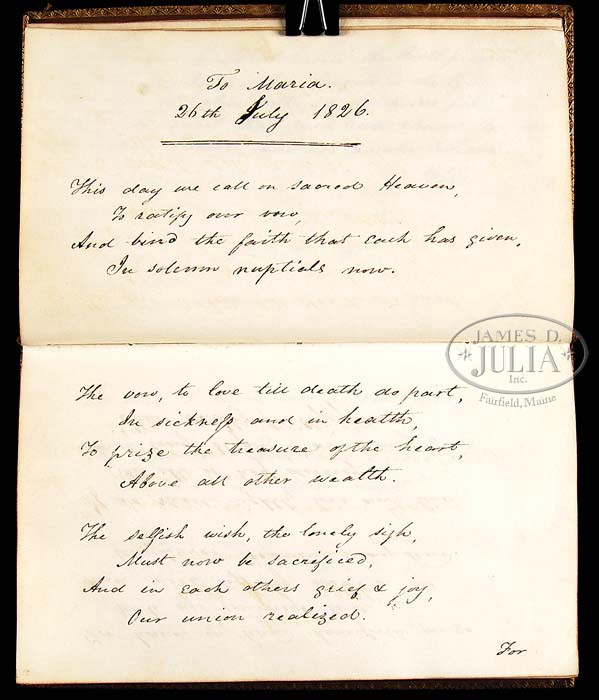 To Maria.
26th July 1826.
This day we call on sacred Heaven,
To ratify our vow,
And bind the faith that each has given,
In solemn nuptials now.
JAMES D.
JULIA
Inc.
Fairfield, Maine
The vow, to love till death do part,
In sickness and in health,
To prize the treasure of the heart,
Above all other wealth.
The selfish wish, the lonely sigh,
Must now be sacrificed,
And in each others grief & joy,
Our union realized.
For